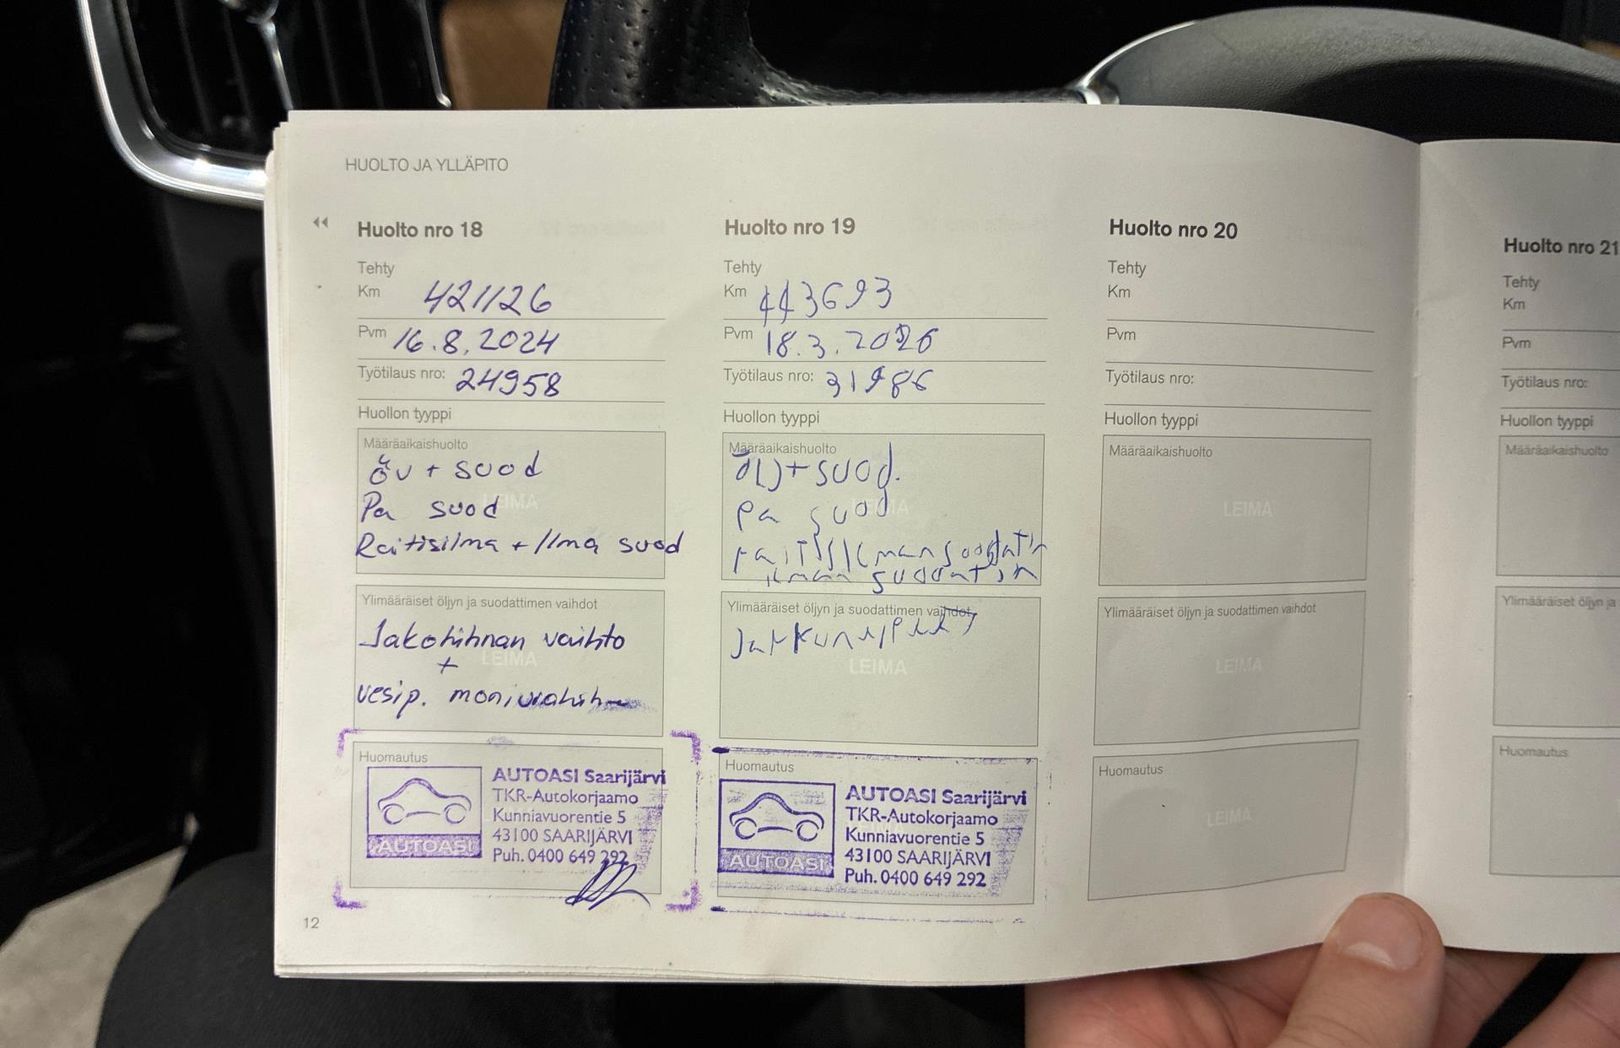 HUOLTO JA YLLÄPITO
Huolto nro 18
Tehty
Km 421126
Pvm 16.8.2024
Työtilaus nro: 24958
Huollon tyyppi
Määräaikaishuolto
öv + suod
LEIMA
Pa suod
Raitisilma + Ilma suod
Ylimääräiset öljyn ja suodattimen vaihdot
Jakohihnan vaihto
LEIMA
+
vesip.
Huomautus
AUTOASI Saarijärvi
TKR-Autokorjaamo
Kunniavuorentie 5
43100 SAARIJÄRVI
Puh. 0400 649 292
AUTOASI
12
Huolto nro 19
Tehty
Km 443693
Pvm 18.3.2026
Työtilaus nro: 31986
Huollon tyyppi
Määräaikaishuolto
+ suod.
LEIMA
pa suod
Ylimääräiset öljyn ja suodattimen vaihdot
LEIMA
Huomautus
AUTOASI Saarijärvi
TKR-Autokorjaamo
Kunniavuorentie 5
43100 SAARIJÄRVI
Puh. 0400 649 292
AUTOASI
Huolto nro 20
Tehty
Km
Pvm
Työtilaus nro:
Huollon tyyppi
Määräaikaishuolto
LEIMA
Ylimääräiset öljyn ja suodattimen vaihdot
LEIMA
Huomautus
LEIMA
Huolto nro 21
Tehty
Km
Pvm
Työtilaus nro:
Huollon tyyppi
Määräaikaishuolto
Ylimääräiset öljyn ja
Huomautus